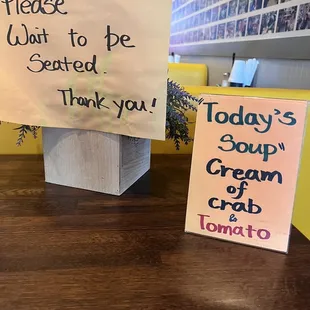 Please
Wait to be
Seated.
Thank you!
"Today's
Soup"
Cream
of
crab
&
Tomato